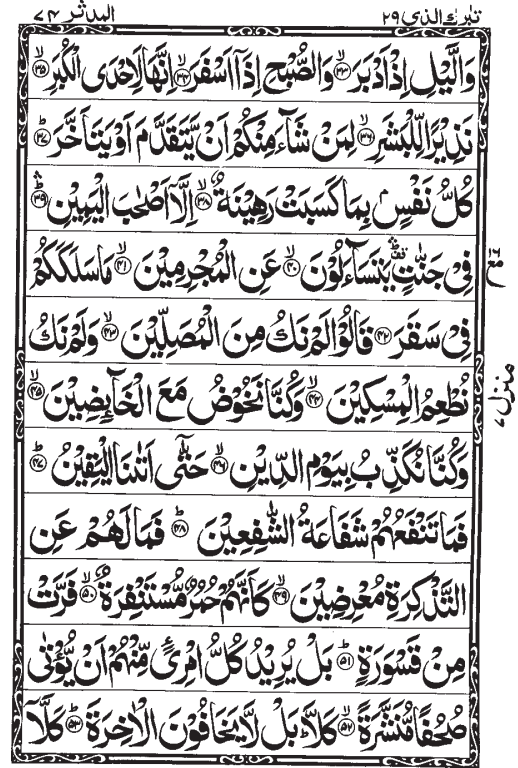 تبرك الذی ۲۹
المدثر ۷۴
وَالَّيْلِ اِذْ اَدْبَرَ ۙ﴿۳۳﴾ وَالصُّبْحِ اِذَاۤ اَسْفَرَ ۙ﴿۳۴﴾ اِنَّهَا لَاِحْدَى الْكُبَرِ ۙ﴿۳۵﴾
نَذِيْرًا لِّلْبَشَرِ ۙ﴿۳۶﴾ لِمَنْ شَآءَ مِنْكُمْ اَنْ يَّتَقَدَّمَ اَوْ يَتَاَخَّرَ ؕ﴿۳۷﴾
كُلُّ نَفْسٍۭ بِمَا كَسَبَتْ رَهِيْنَةٌ ۙ﴿۳۸﴾ اِلَّاۤ اَصْحٰبَ الْيَمِيْنِ ؕۛ﴿۳۹﴾
فِيْ جَنّٰتٍ ۛ۫ يَتَسَآءَلُوْنَ ۙ﴿۴۰﴾ عَنِ الْمُجْرِمِيْنَ ۙ﴿۴۱﴾ مَا سَلَكَكُمْ
فِيْ سَقَرَ ﴿۴۲﴾ قَالُوْا لَمْ نَكُ مِنَ الْمُصَلِّيْنَ ۙ﴿۴۳﴾ وَلَمْ نَكُ
نُطْعِمُ الْمِسْكِيْنَ ۙ﴿۴۴﴾ وَكُنَّا نَخُوْضُ مَعَ الْخَآئِضِيْنَ ۙ﴿۴۵﴾
وَكُنَّا نُكَذِّبُ بِيَوْمِ الدِّيْنِ ۙ﴿۴۶﴾ حَتّٰۤى اَتٰىنَا الْيَقِيْنُ ؕ﴿۴۷﴾
فَمَا تَنْفَعُهُمْ شَفَاعَةُ الشّٰفِعِيْنَ ؕ﴿۴۸﴾ فَمَا لَهُمْ عَنِ
التَّذْكِرَةِ مُعْرِضِيْنَ ۙ﴿۴۹﴾ كَاَنَّهُمْ حُمُرٌ مُّسْتَنْفِرَةٌ ۙ﴿۵۰﴾ فَرَّتْ
مِنْ قَسْوَرَةٍ ؕ﴿۵۱﴾ بَلْ يُرِيْدُ كُلُّ امْرِئٍ مِّنْهُمْ اَنْ يُّؤْتٰى
صُحُفًا مُّنَشَّرَةً ۙ﴿۵۲﴾ كَلَّا ؕ بَلْ لَّا يَخَافُوْنَ الْاٰخِرَةَ ؕ﴿۵۳﴾ كَلَّاۤ
منزل ۷